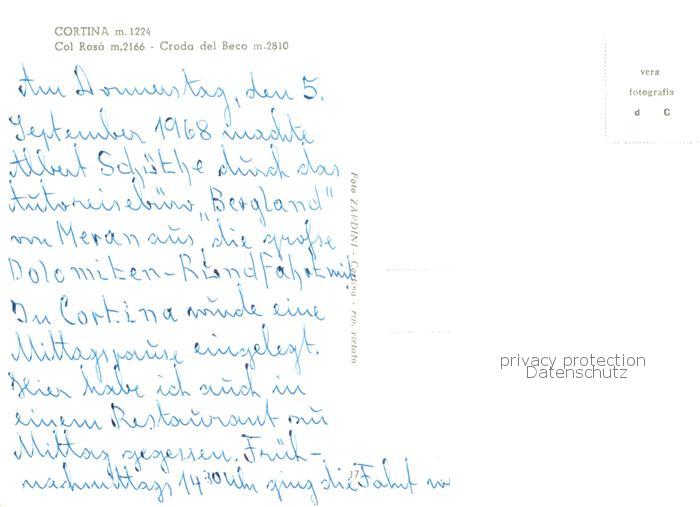 CORTINA m. 1224
Col Rosà m.2166 - Croda del Beco m.2810
vera
fotografia
d C
Am Donnerstag, den 5.
September 1968 machte
Albert Schüthe durch das
Autoreisebüro „Bergland"
von Meran aus, die große
Dolomiten-Rundfahrt mit.
In Cortina wurde eine
Mittagspause eingelegt.
Hier habe ich auch in
einem Restaurant zu
Mittag gegessen. Früh-
nachmittags 14:30 Uhr ging die Fahrt
Foto ZARDINI - Cortina - rip. vietata
17
privacy protection
Datenschutz